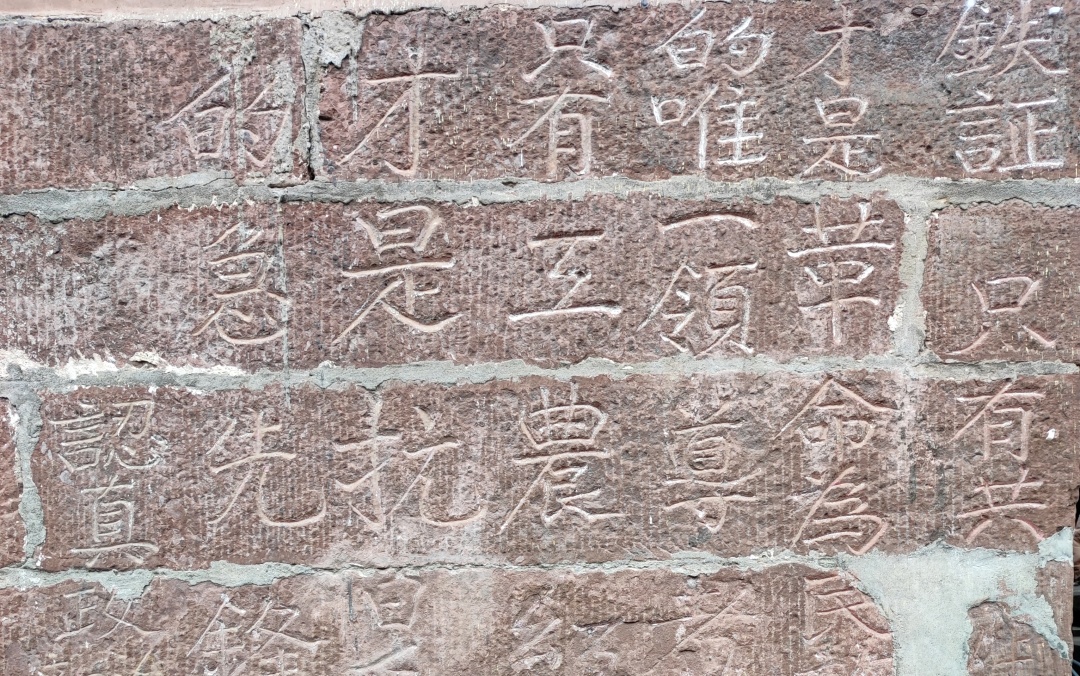 鉄証只有共
才是革命為民
的唯一領導者
只有工農紅
才是抗日
的急先鋒
認真政